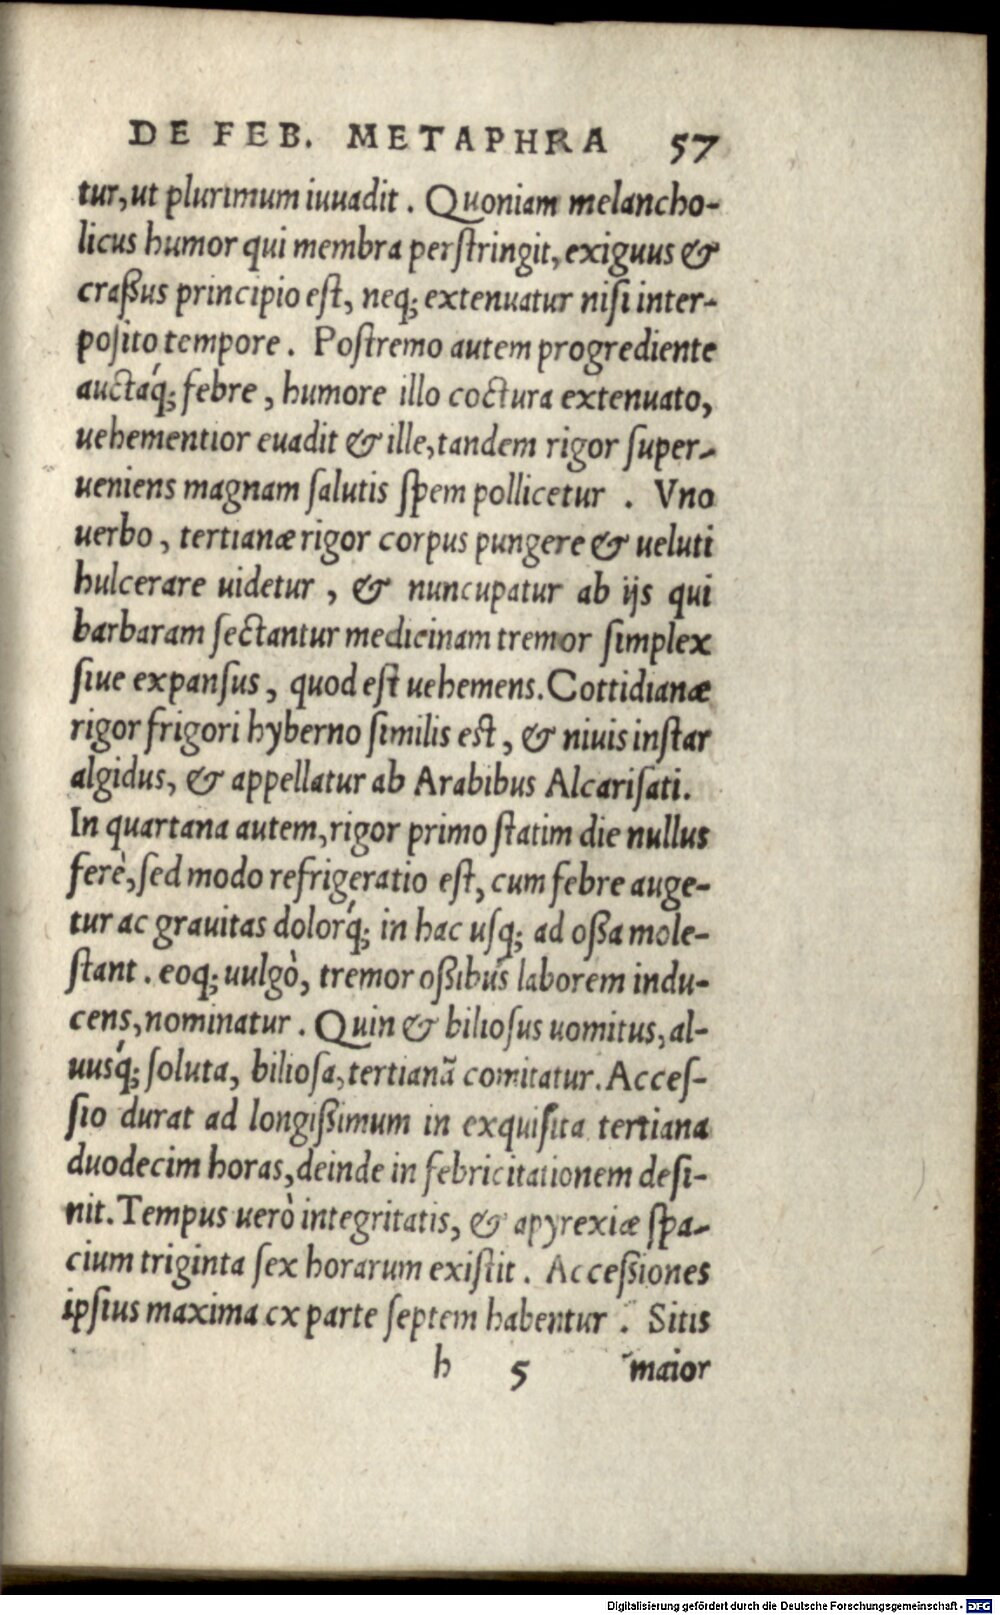 DE FEB. METAPHRA 57
tur,ut plurimum iuuadit. Quoniam melancho-
licus humor qui membra perſtringit, exiguus &
craßus principio eſt, neq; extenuatur niſi inter-
poſito tempore. Poſtremo autem progrediente
auctáq; febre, humore illo coctura extenuato,
uehementior euadit & ille,tandem rigor ſuper-
ueniens magnam ſalutis ſpem pollicetur. Vno
uerbo, tertianæ rigor corpus pungere & ueluti
hulcerare uidetur, & nuncupatur ab ijs qui
barbaram ſectantur medicinam tremor ſimplex
ſiue expanſus, quod eſt uehemens. Cottidianæ
rigor frigori hyberno ſimilis est, & niuis inſtar
algidus, & appellatur ab Arabibus Alcariſati.
In quartana autem, rigor primo ſtatim die nullus
ferè, ſed modo refrigeratio eſt, cum febre auge-
tur ac grauitas dolorq́; in hac uſq; ad oßa mole-
ſtant. eoq; uulgò, tremor oßibus laborem indu-
cens, nominatur. Quin & bilioſus uomitus, al-
uusq́; ſoluta, bilioſa, tertianã comitatur. Acceſ-
ſio durat ad longißimum in exquiſita tertiana
duodecim horas, deinde in febricitationem deſi-
nit. Tempus uerò integritatis, & apyrexiæ ſpa-
cium triginta ſex horarum exiſtit. Acceßiones
ipſius maxima ex parte ſeptem habentur. Sitis
h 5 maior
Digitalisierung gefördert durch die Deutsche Forschungsgemeinschaft - DFG